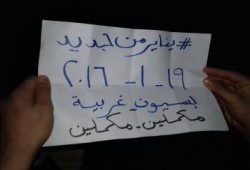 #يناير من جديد
١٩ - ١ - ٢٠١٦
بسيون - غربية
مكملين - مكملين